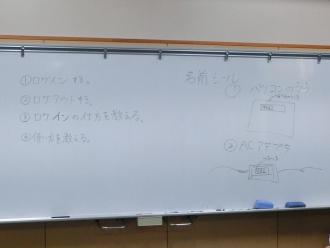 ①ログインする。
②ログアウトする。
③ログインの仕方を教える。
④使い方を教える。
名前シール
①パソコンのうら
②ACアダプタ